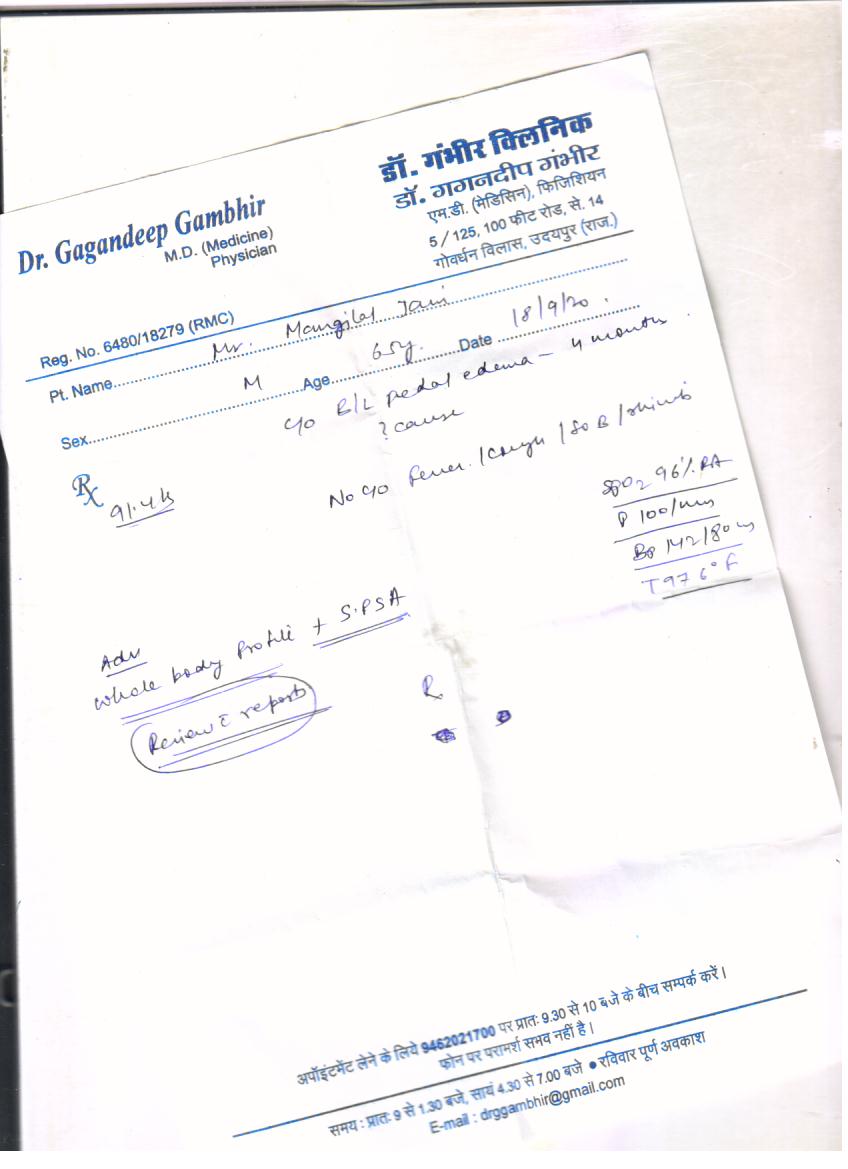 डॉ. गंभीर क्लिनिक
डॉ. गगनदीप गंभीर
एम.डी. (मेडिसिन), फिजिशियन
5 / 125, 100 फीट रोड, से. 14
गोवर्धन विलास, उदयपुर (राज.)
Dr. Gagandeep Gambhir
M.D. (Medicine)
Physician
Reg. No. 6480/18279 (RMC)
Pt. Name Mr. Mangilal Jani
Sex M Age 65y. Date 18/9/20.
c/o B/L pedal edema - 4 months.
? cause
Rx
91.4 k
No c/o fever / Cough / SOB /
SPO2 96% RA
P 100/min
BP 142/80
T 97.6°F
Adv
Whole body Profile + S.PSA
Review c̄ reports
R
अपॉइंटमेंट लेने के लिये 9462021700 पर प्रातः 9.30 से 10 बजे के बीच सम्पर्क करें।
फोन पर परामर्श संभव नहीं है।
समय : प्रातः 9 से 1.30 बजे, सायं 4.30 से 7.00 बजे ● रविवार पूर्ण अवकाश
E-mail : drggambhir@gmail.com